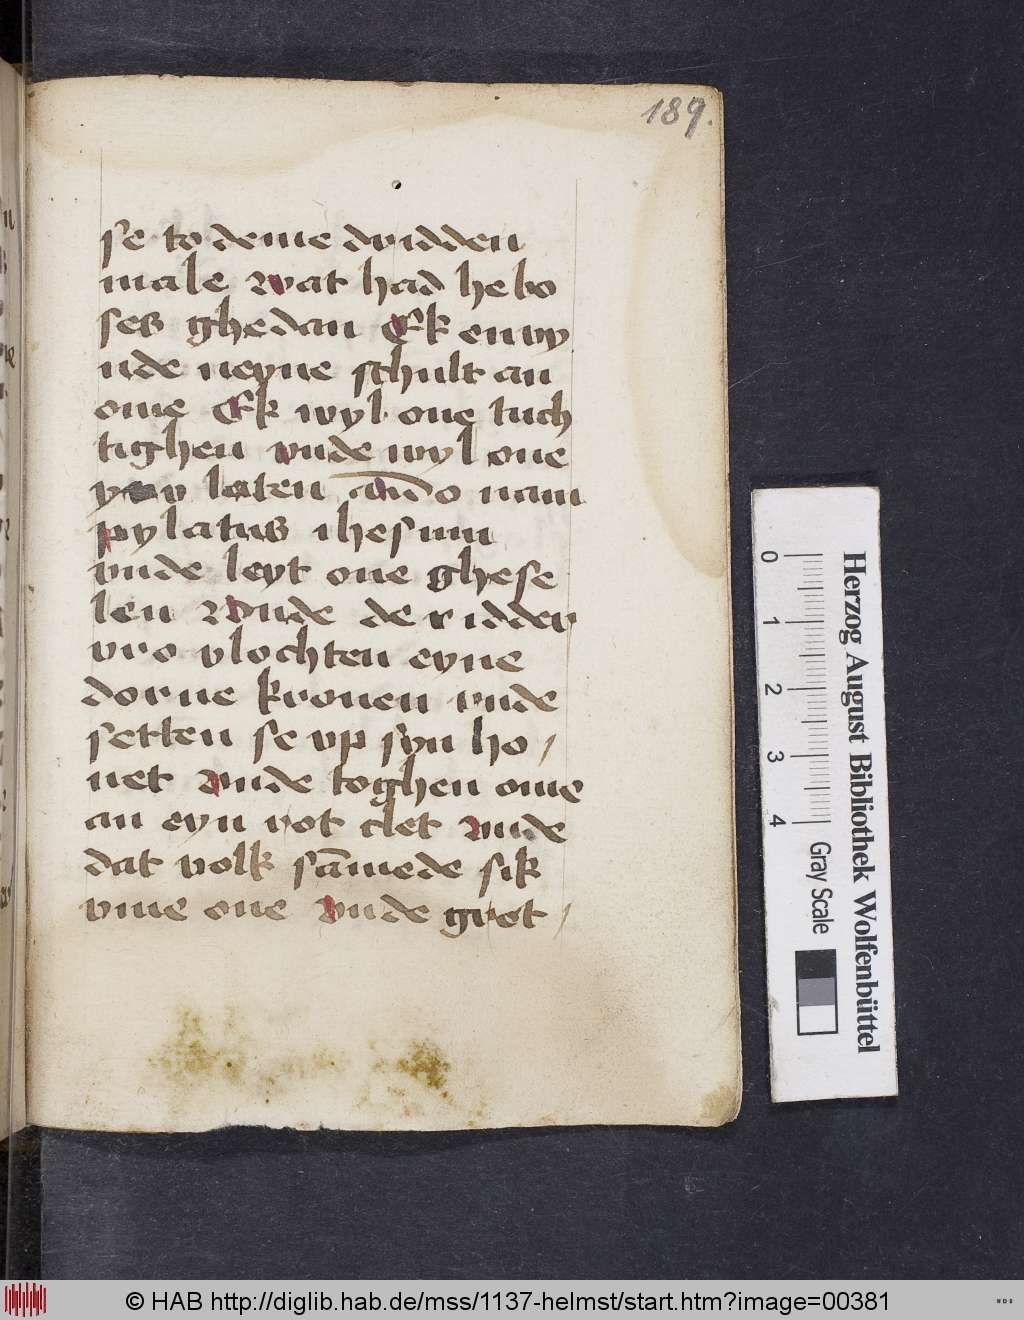 189.
se to deme dridden
male Wat had he bo
ses ghedan Ek en vy
nde neyne schult an
ome Ek wyl one tuch
tighen vnde wyl one
laten do nam
pylatus ihesum
vnde leyt one ghese
len Vnde de ridder
vro vlochten eyne
dorne kronen vnde
setten se vp syn ho /
uet vnde toghen ome
an eyn rot clet vnde
dat volk sāmede sik
vme one vnde grot /
0 1 2 3 4
Herzog August Bibliothek Wolfenbüttel
Gray Scale
© HAB http://diglib.hab.de/mss/1137-helmst/start.htm?image=00381